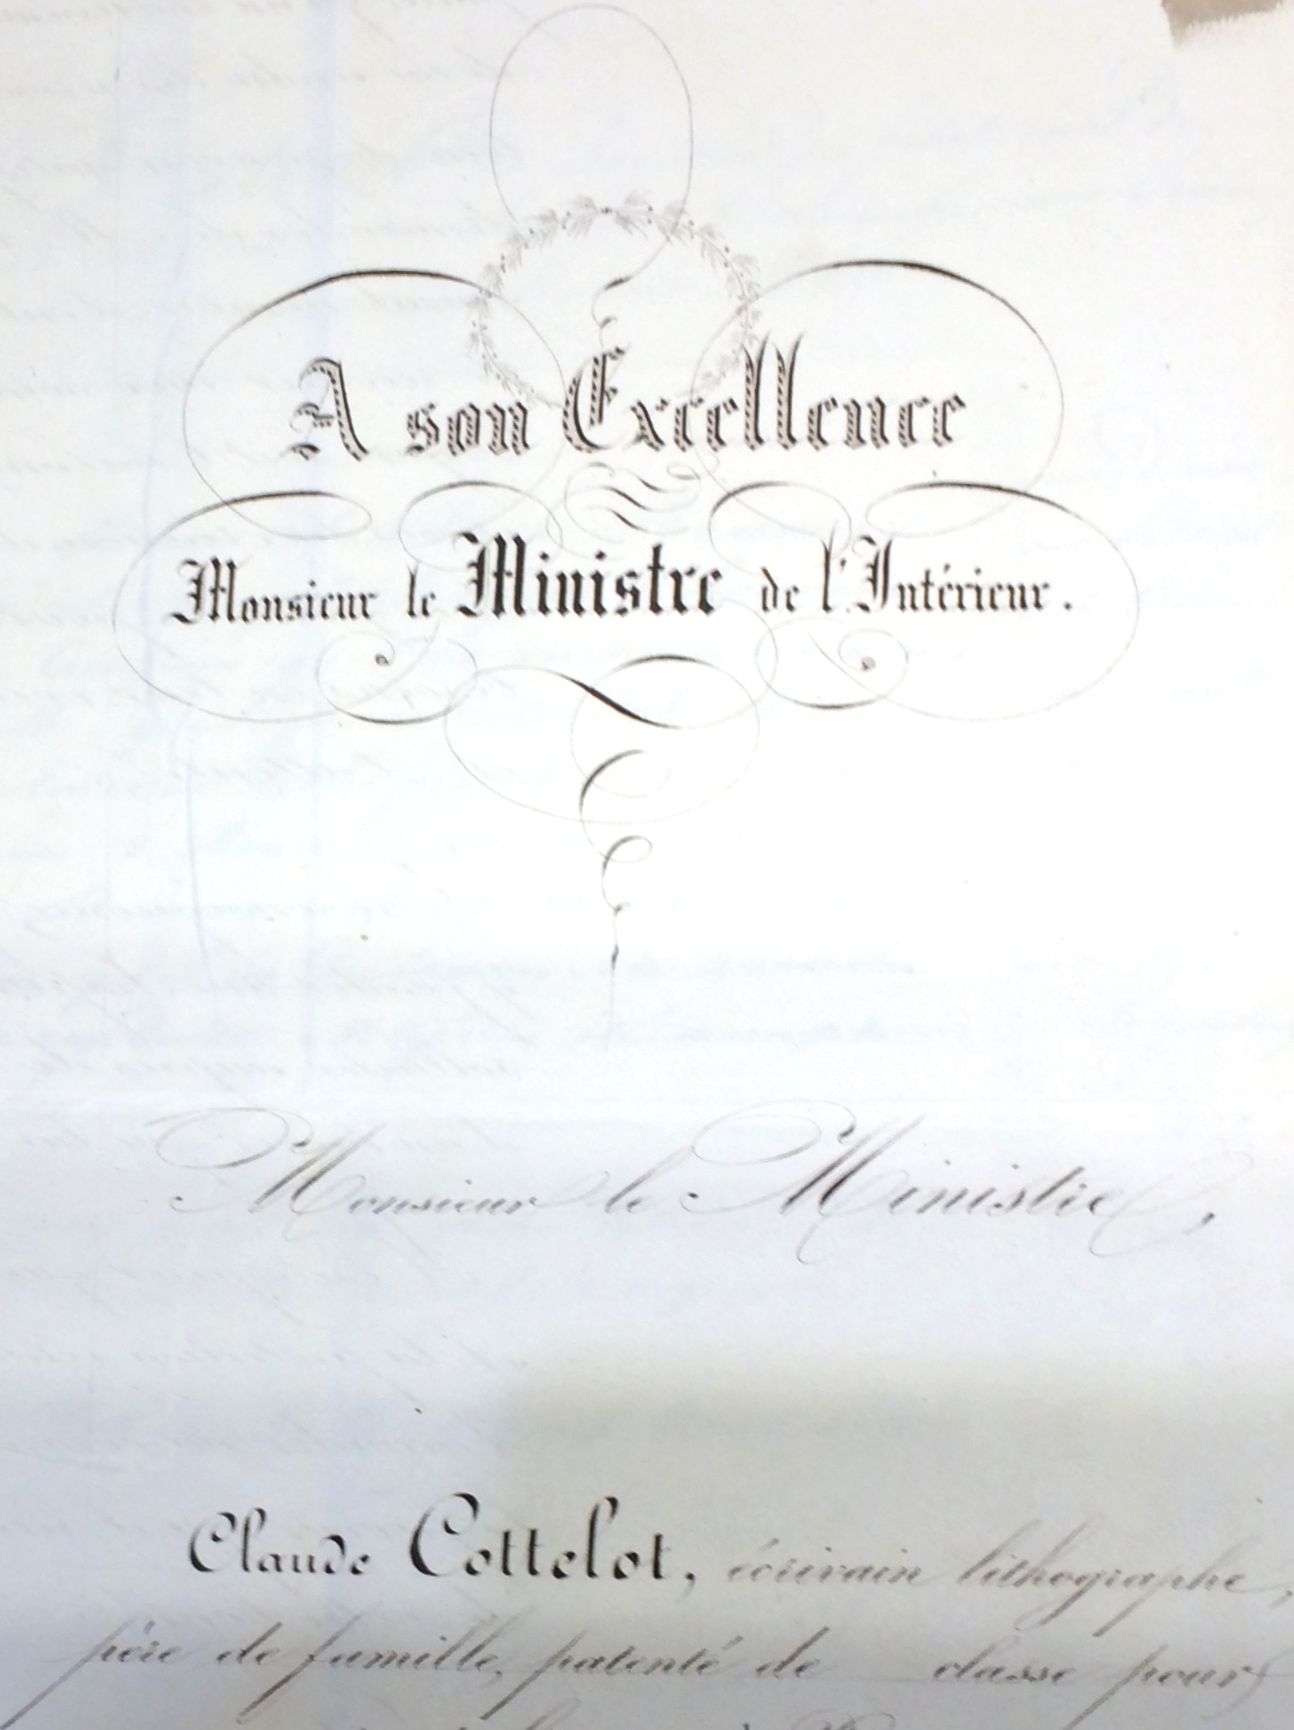 A son Excellence
Monsieur le Ministre de l'Intérieur.
Monsieur le Ministre,
Claude Cottelot, écrivain lithographe,
père de famille, patenté de classe pour